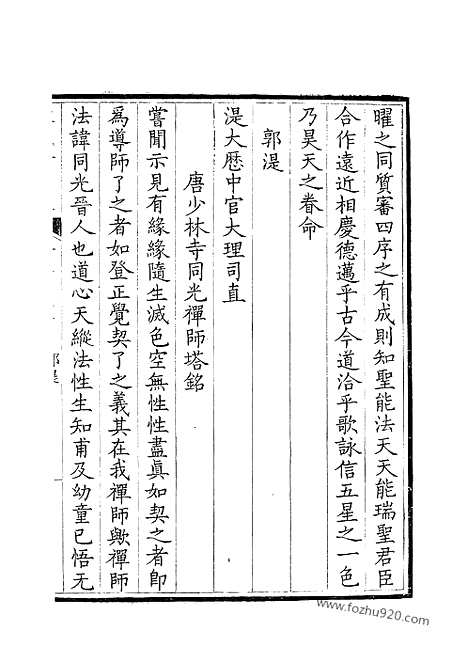 曜之同質審四序之有成則知聖能法天天能瑞聖君臣
合作遠近相慶德邁乎古今道洽乎歌詠信五星之一色
乃昊天之眷命
郭湜
湜大歷中官大理司直
唐少林寺同光禪師塔銘
嘗聞示見有緣緣隨生滅色空無性性盡眞如契之者卽
爲導師了之者如登正覺契了之義其在我禪師歟禪師
法諱同光晉人也道心天縱法性生知甫及幼童已悟无
www.fozhu920.com